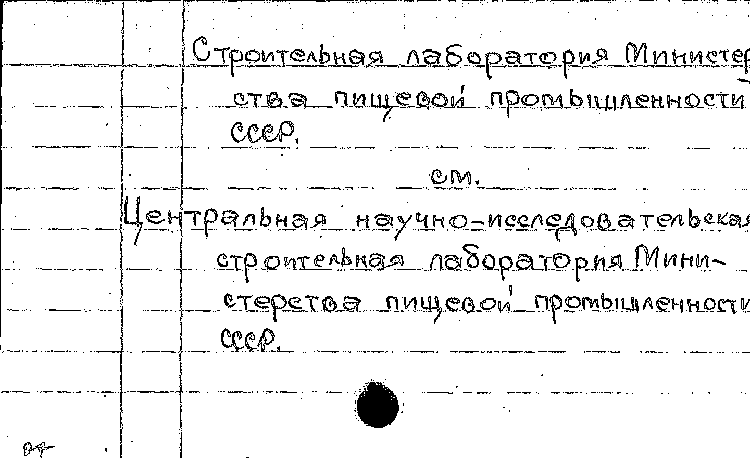 Строительная лаборатория Министер
ства пищевой промышленности
СССР.
см.
Центральная научно-исследовательская
строительная лаборатория Мини-
стерства пищевой промышленности
СССР.